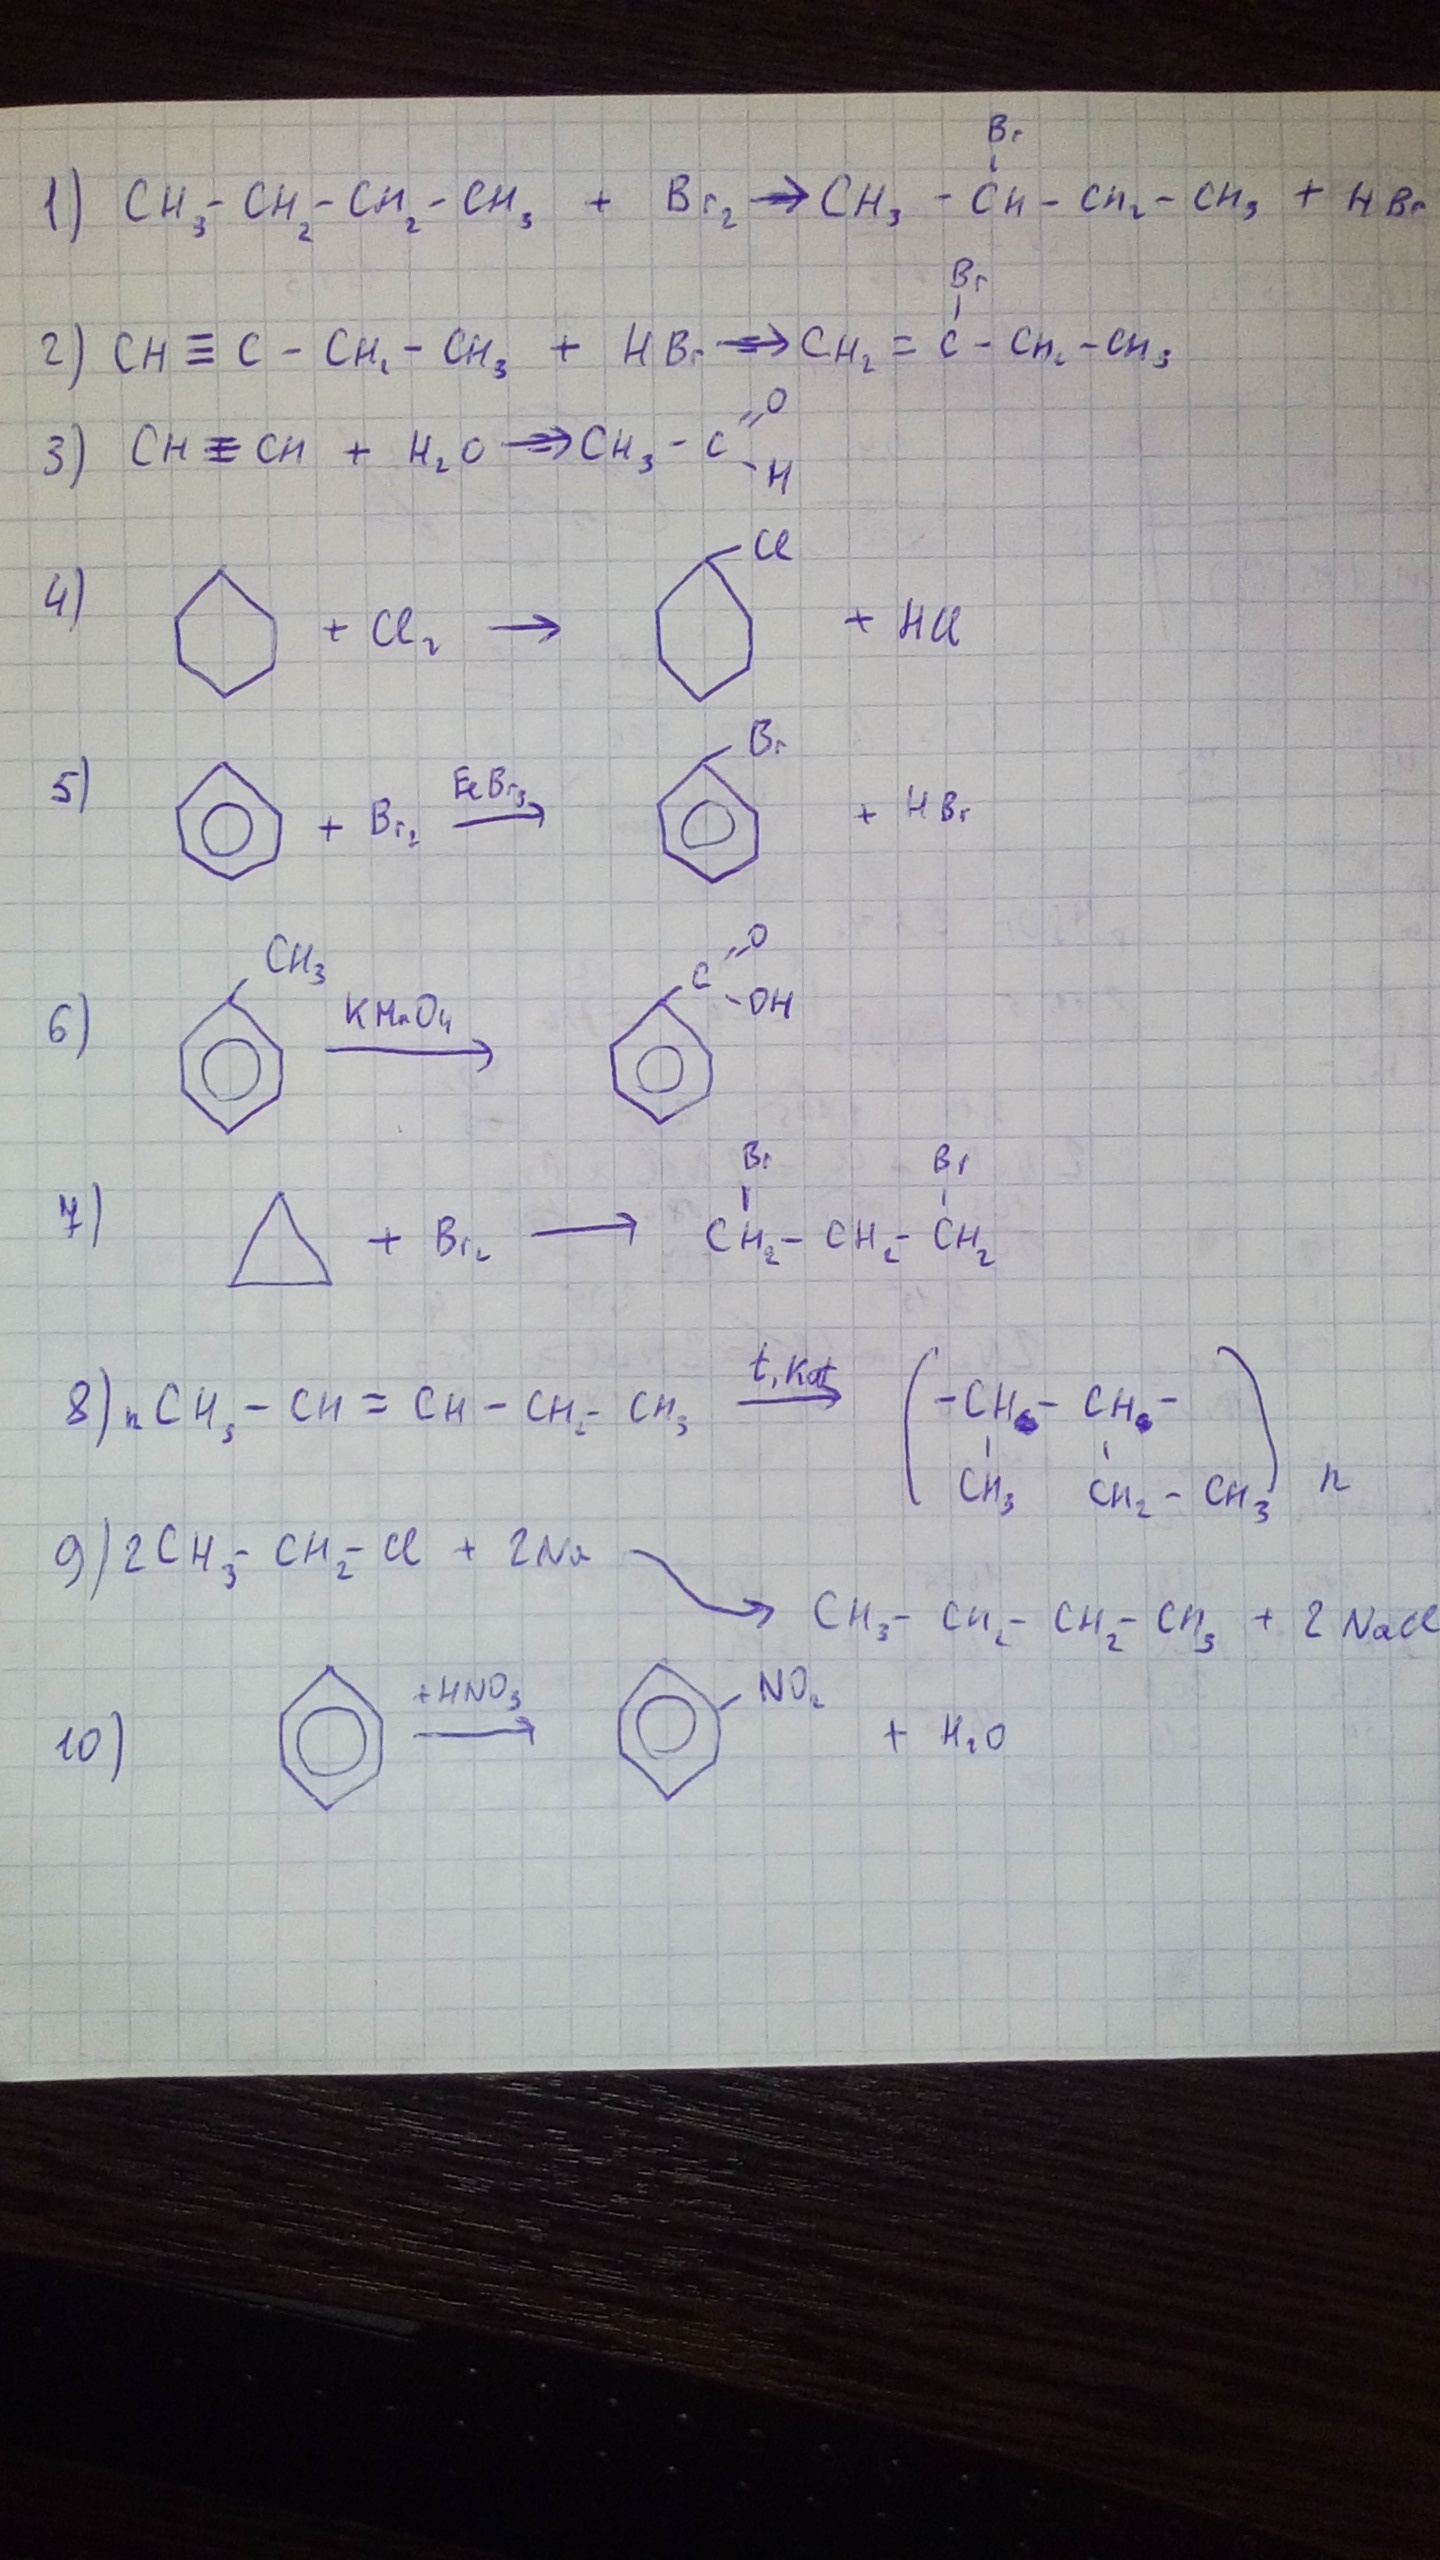 Br
1) CH₃ - CH₂ - CH₂ - CH₃ + Br₂ → CH₃ - CH - CH₂ - CH₃ + HBr
Br
2) CH ≡ C - CH₂ - CH₃ + HBr → CH₂ = C - CH₂ - CH₃
O
3) CH ≡ CH + H₂O → CH₃ - C
H
Cl
4) + Cl₂ → + HCl
Br
5) + Br₂ FeBr₃ → + HBr
CH₃ C O
6) KMnO₄ → OH
Br Br
7) + Br₂ → CH₂ - CH₂ - CH₂
8) n CH₃ - CH = CH - CH₂ - CH₃ t, Kat → ( - CH - CH - )
CH₃ CH₂ - CH₃ n
9) 2CH₃ - CH₂ - Cl + 2Na →
CH₃ - CH₂ - CH₂ - CH₃ + 2NaCl
10) + HNO₃ → NO₂ + H₂O